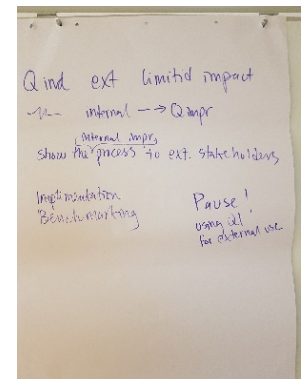 Qind ext limitid impact
-"- internal -> Qimpr
internal impr.
show the process to ext. stakeholders
Implimentation
Benchmarking
Pause!
using QI
for external use